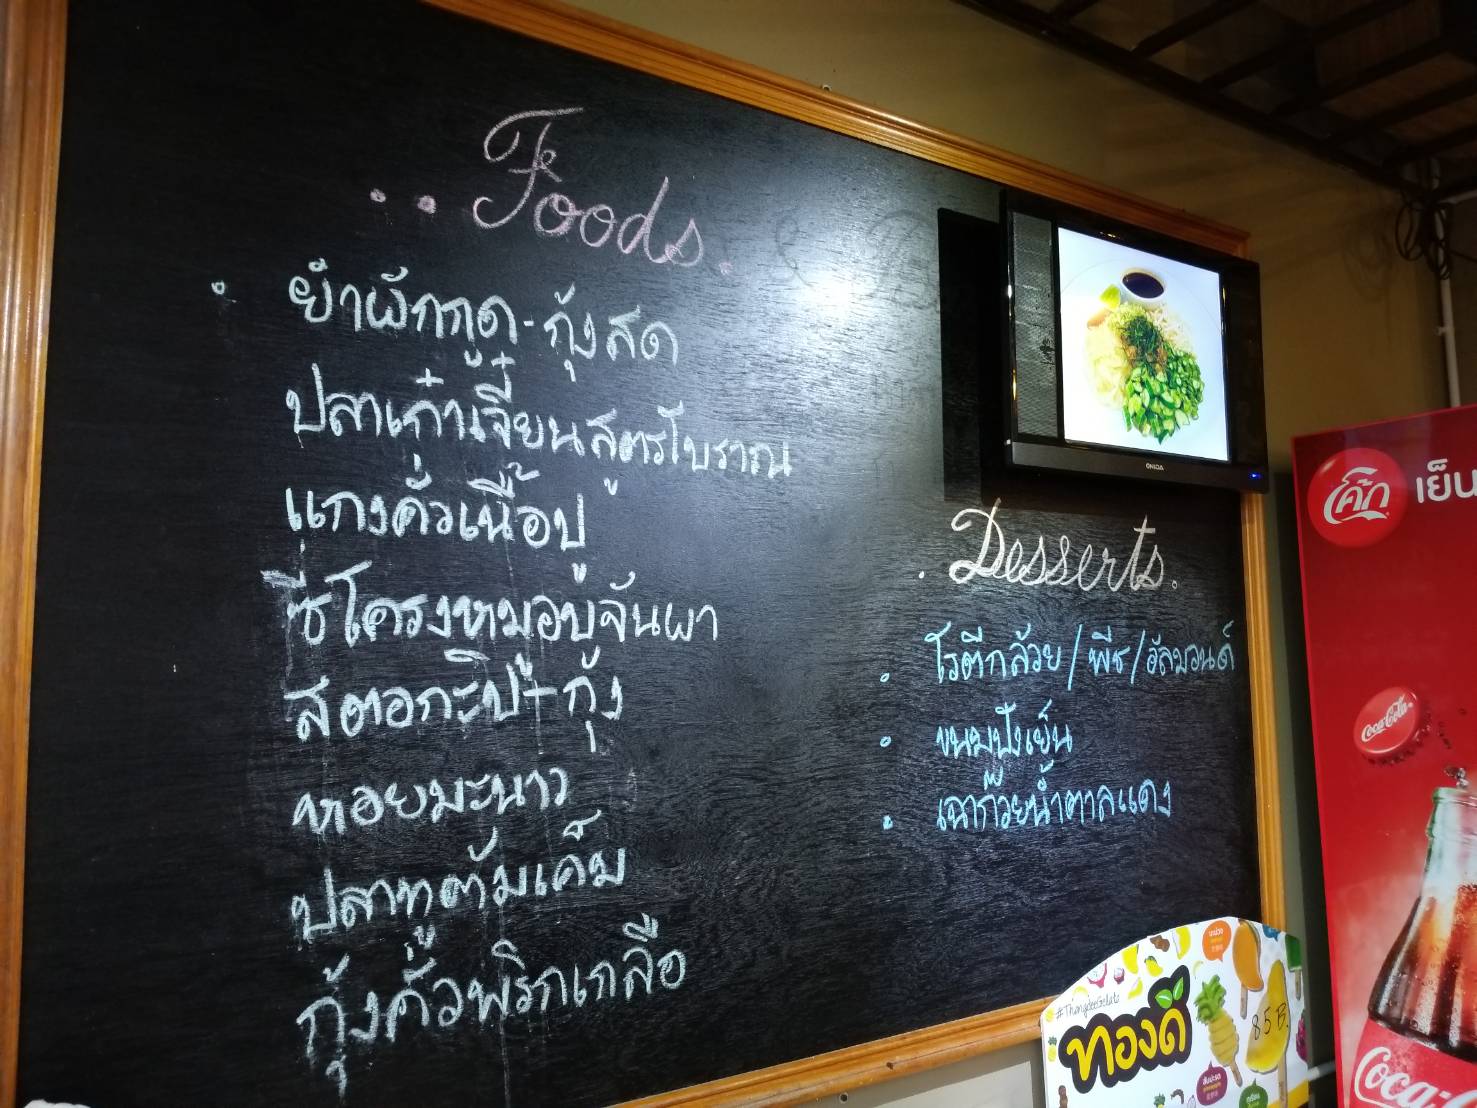 ..Foods.
• ยำผักกูด-กุ้งสด
ปลาเก๋าเจี๋ยนสูตรโบราณ
แกงคั่วเนื้อปู
ซี่โครงหมูอบจันผา
สตอกะปิ+กุ้ง
หอยมะนาว
ปลาทูต้มเค็ม
กุ้งคั่วพริกเกลือ
ONIDA
. Desserts.
. โรตีกล้วย/พีช/อัลมอนด์
. ขนมปังเย็น
. เฉาก๊วยน้ำตาลแดง
โค้ก
เย็น
Coca-Cola
#ThongdeeGelato
ทองดี
85 B.
Coca-C